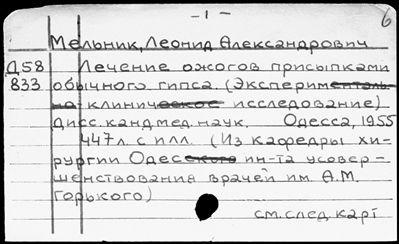 - 1 - 6
Мельник, Леонид Александрович
Д58 Лечение ожогов присыпками
833 обычного гипса. (Эксперименталь-
но клиническое исследование)
Дисс. канд. мед. наук. Одесса, 1955
447л. с илл. (Из кафедры хи-
рургии Одесского ин-та усовер-
шенствования врачей им. А.М.
Горького)
см. след. карт